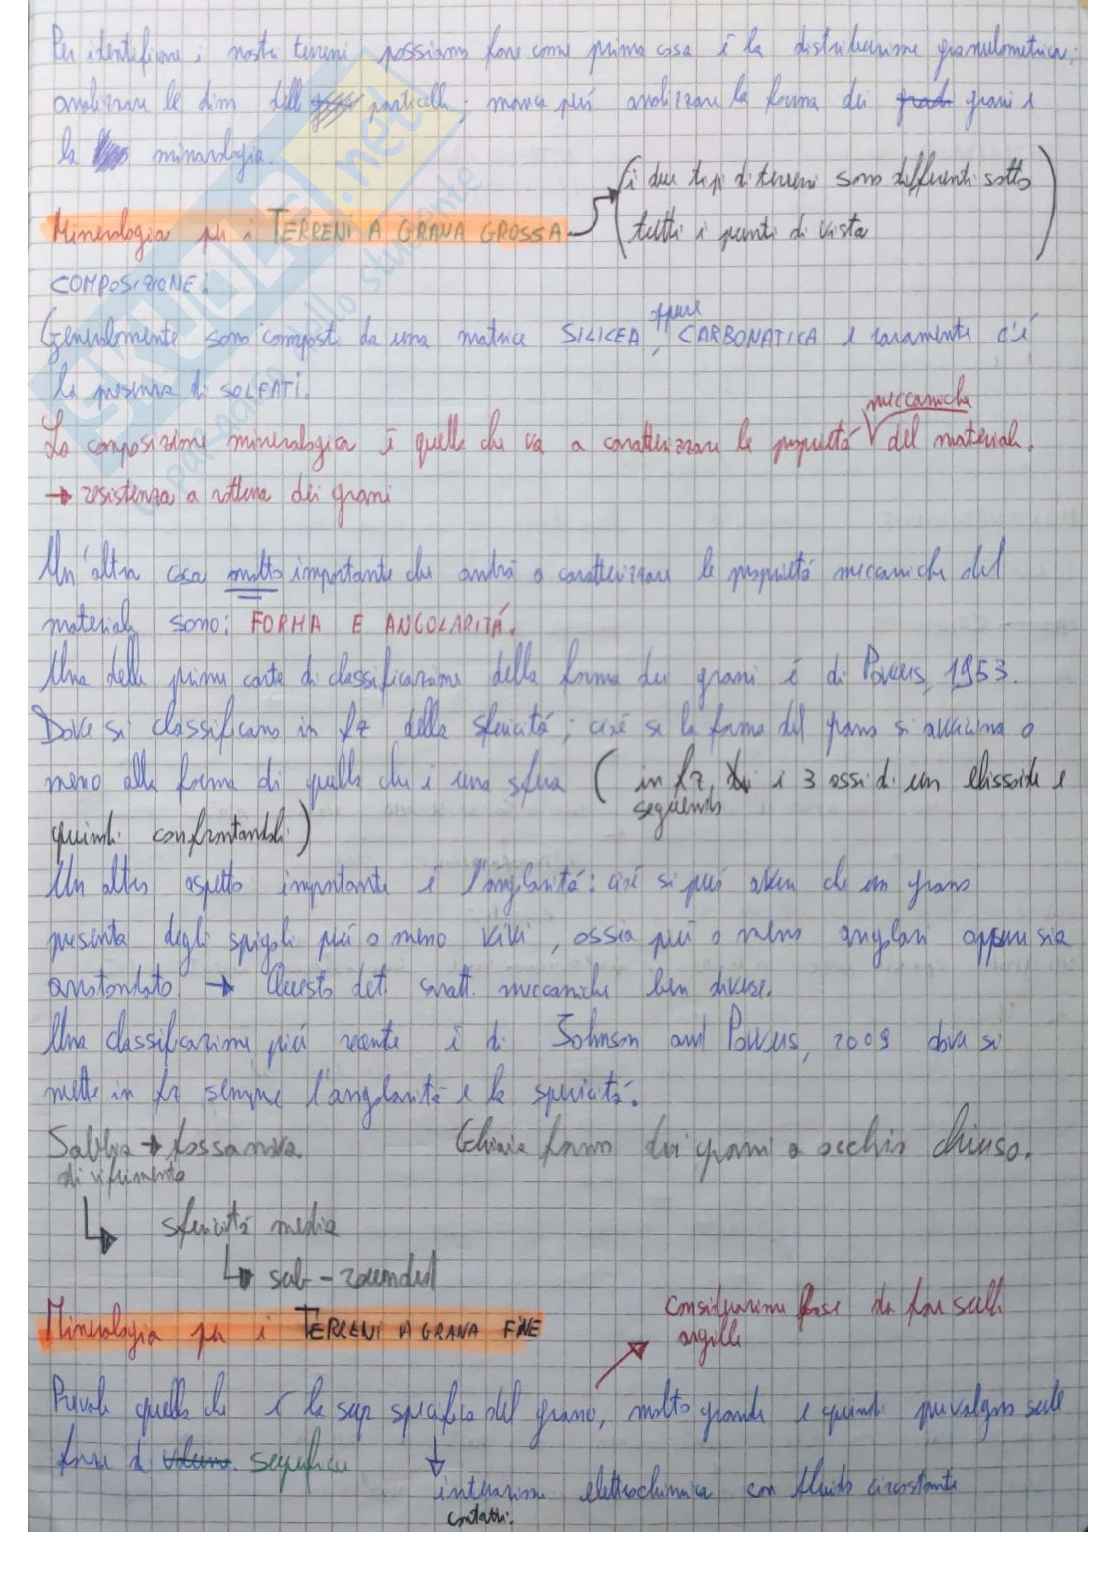 Per identificare i nostri terreni possiamo fare come prima cosa è la distribuzione granulometrica;
analizzare le dim delle particelle; manca però analizzare la forma dei grani e
la minarologia.
(i due tipi di terreni sono differenti sotto
tutti i punti di vista)
Minerologia per i TERRENI A GRANA GROSSA
COMPOSIZIONE:
Generalmente sono composti da una matrice SILICEA, oppure CARBONATICA e raramente c'è
la presenza di SOLFATI.
La composizione mineralogica è quella che va a caratterizzare le proprietà meccaniche del material.
→ resistenza a rottura dei grani
Un'altra cosa molto importante che andrà a caratterizzare le proprietà meccaniche del
materiale sono: FORMA E ANGOLARITÁ.
Una delle prime carte di classificazione della forma dei grani è di Powers, 1953.
Dove si classificano in fz della sfericità; cioè se la forma del grano si avvicina o
meno alla forma di quella che è una sfera (in fz, i 3 assi di un elissoide e
seguendo
quindi confrontandoli)
Un altro aspetto importante è l'anglarità: cioè si può avere che un grano
presenta degli spigoli più o meno vivi, ossia più o meno anglari oppure sia
arrotondato → Questo det. caratt. meccaniche ben diverse.
Una classificazione più recente è di Johnson and Powers, 2009 dove si
mette in fz sempre l'anglarità e la spericità.
Sabbia → fossanova. Ghiaia forma dei grani a occhio chiuso.
di riferimento
sfericità media
sub-rounded
Minerologia per i TERRENI A GRANA FINE
Consideriamo fase da fare sulle
argille
Prevale quella che è la sup specifica del grano, molto grande e quindi prevalgono sulle
forze di volume. superficie
interazione elettrochimica con fluido circostante
contatti.